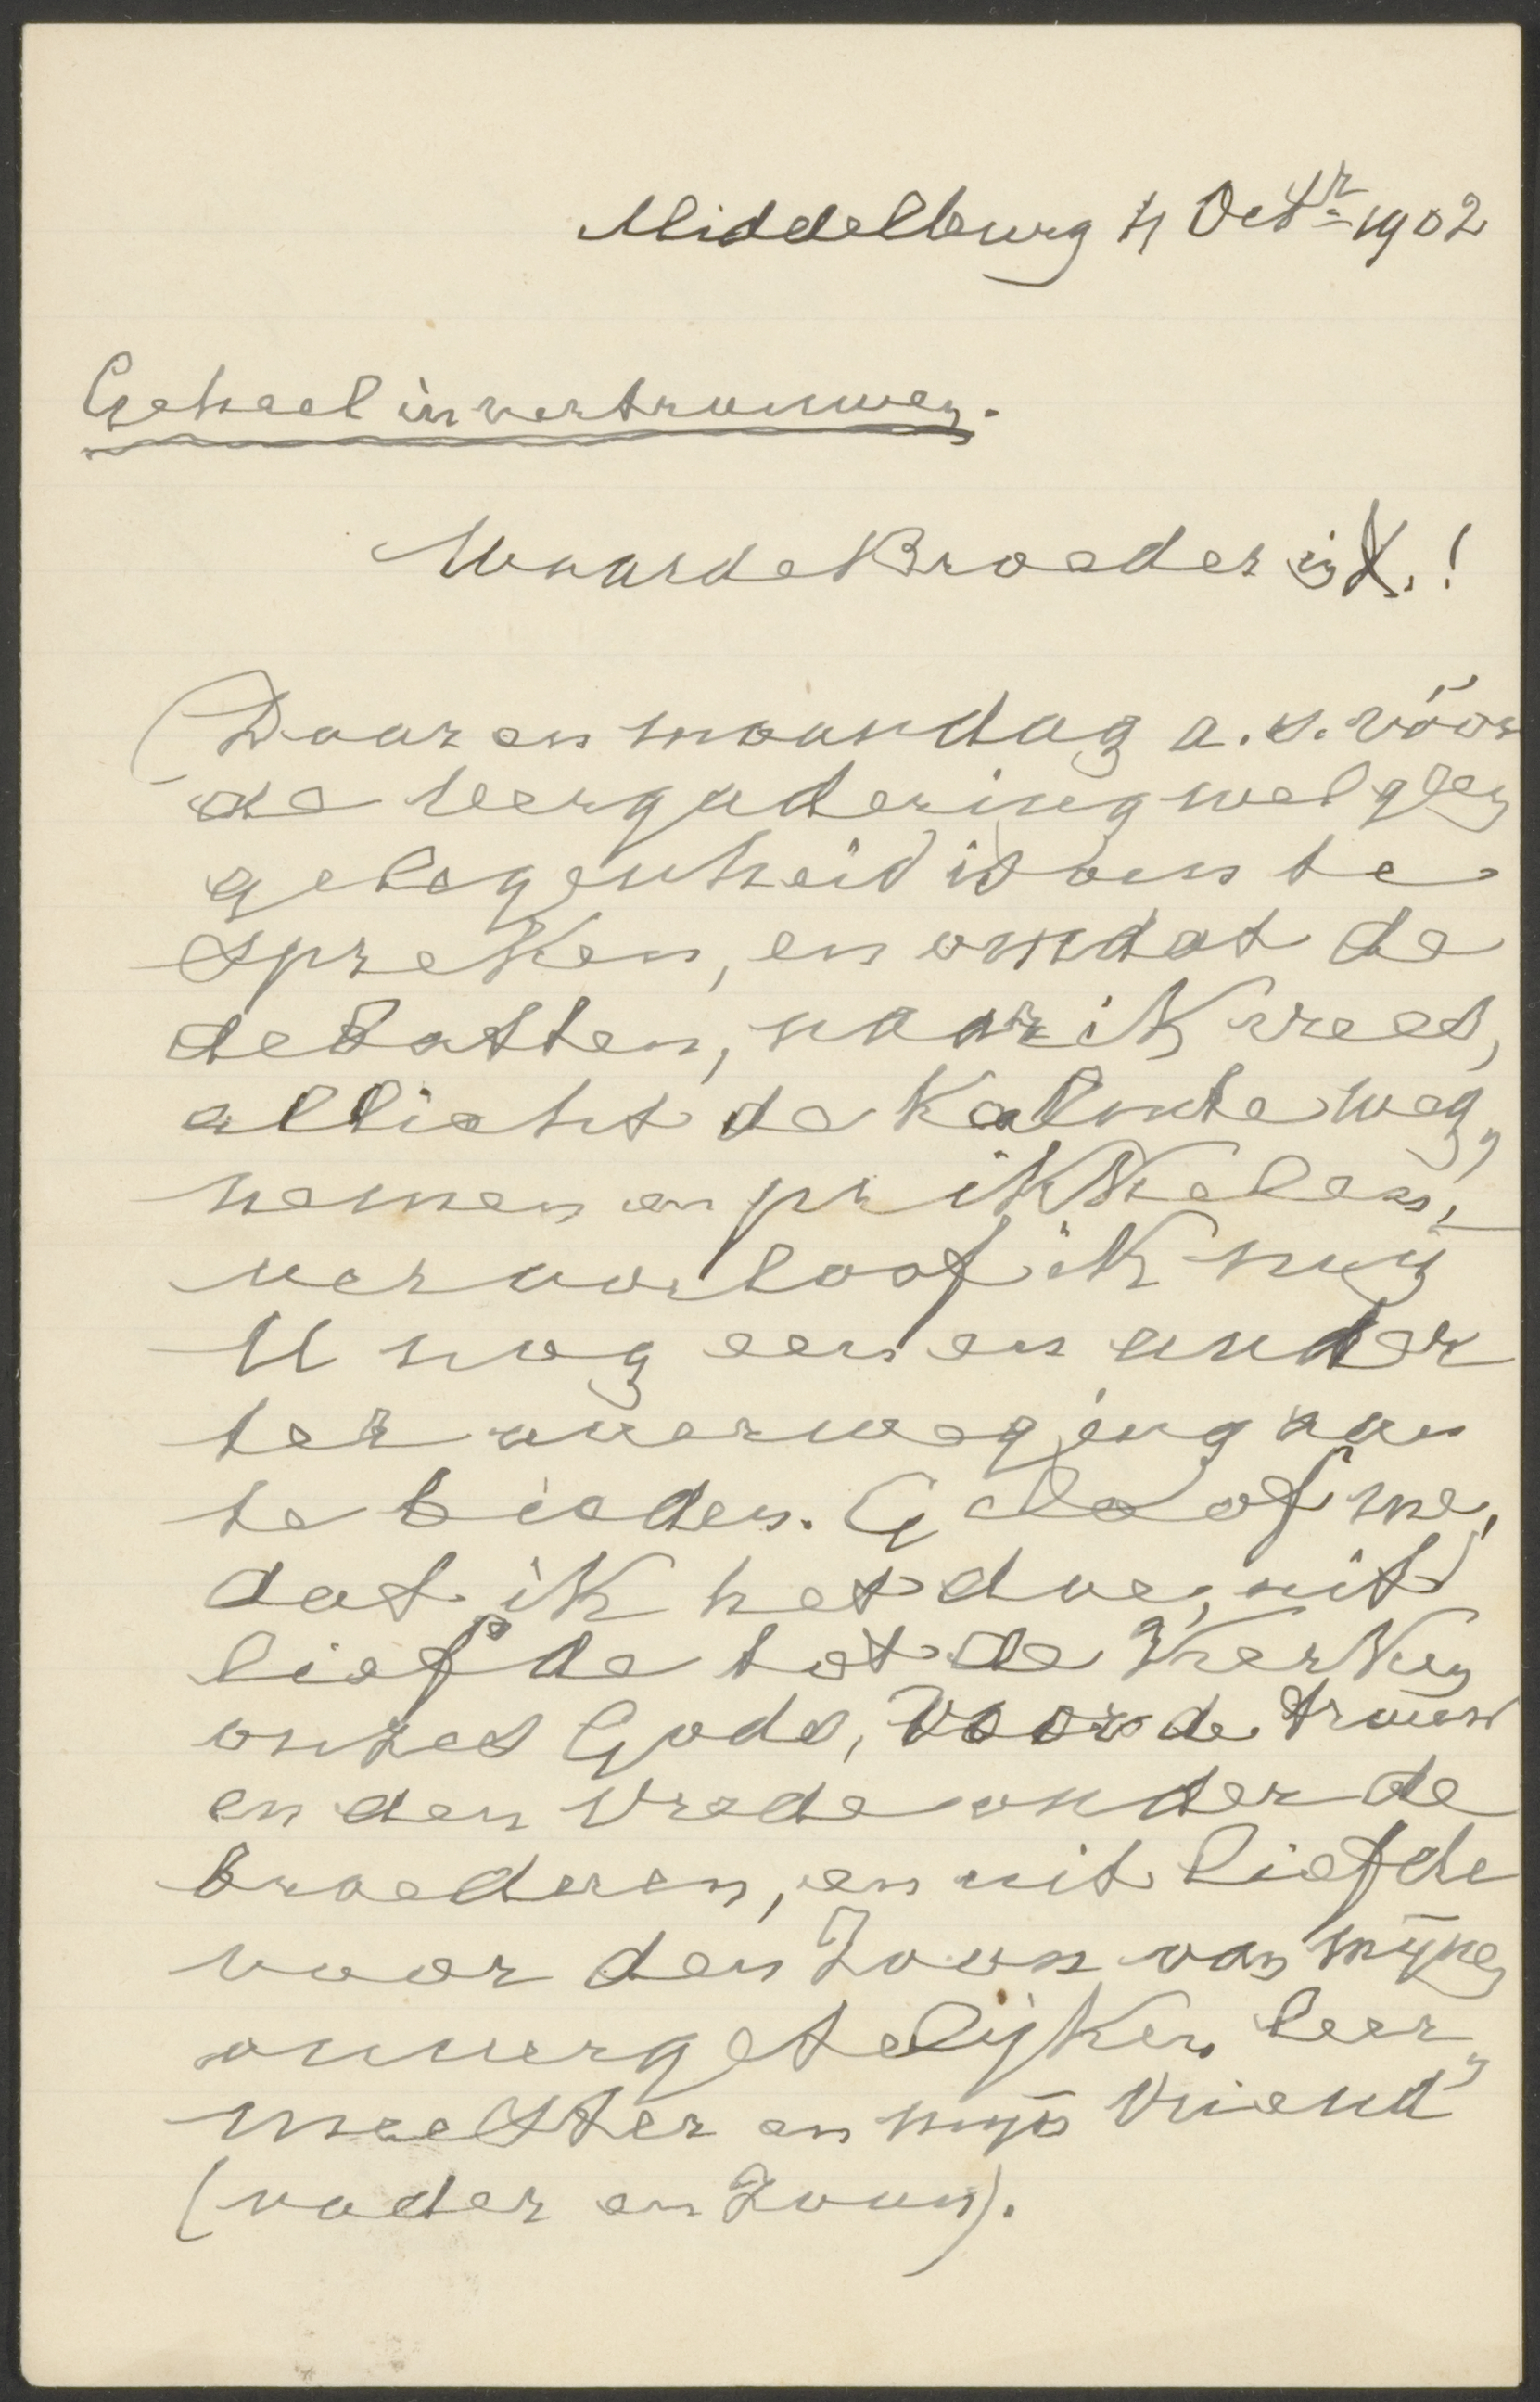 Middelburg 4 Octr 1902
Geheel in vertrouwen.
Waarde Broeder in X.!
Daar en maandag a.s. vóór
de Vergadering wel geen
gelegenheid is om te
spreken, en omdat de
debatten, naar ik vrees,
allicht de kalmte weg„
nemen en prikkelen,
veroorloof ik mij
U nog een en ander
ter overweging aan
te bieden. Geloof me,
dat ik het doe, uit
liefde tot de Kerken
onzes Gods, voor de trouw
en den Vrede onder de
broederen, en uit liefde
voor den Zoon van mijnen
onvergetelijken leer„
meester en mijn Vriend
(vader en Zoon).